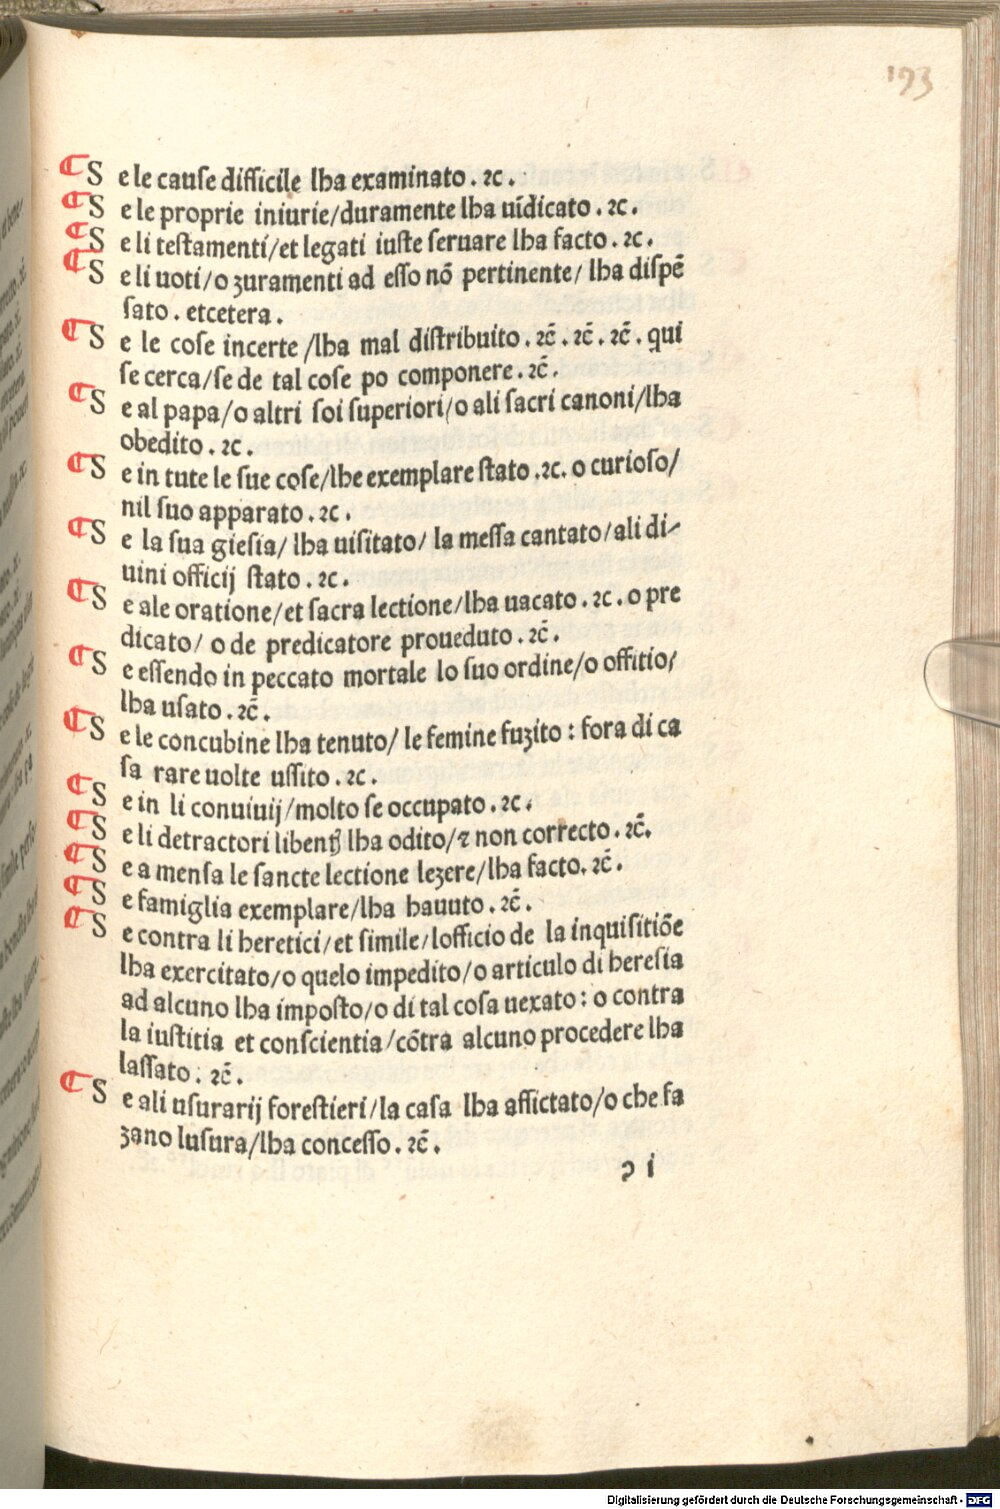 193
¶ S e le cause difficile lha examinato . ⁊c .
¶ S e le proprie iniurie/duramente lha uīdicato . ⁊c .
¶ S e li testamenti/et legati iuste seruare lha facto . ⁊c .
¶ S e li uoti/o zuramenti ad esso nō pertinente/ lha dispē
sato . etcetera .
¶ S e le cose incerte /lha mal distribuito . ⁊c̄ . ⁊c̄ . ⁊c̄ . qui
se cerca/se de tal cose po componere . ⁊c̄ .
¶ S e al papa/o altri soi superiori/o ali sacri canoni/lha
obedito . ⁊c .
¶ S e in tute le sue cose/lhe exemplare stato .⁊c. o curioso/
nil suo apparato . ⁊c .
¶ S e la sua giesia/ lha uisitato/ la messa cantato/ali di-
uini officij stato . ⁊c .
¶ S e ale oratione/et sacra lectione/lha uacato . ⁊c . o pre
dicato/ o de predicatore proueduto . ⁊c̄ .
¶ S e essendo in peccato mortale lo suo ordine/o offitio/
lha usato . ⁊c̄ .
¶ S e le concubine lha tenuto/ le femine fuzito : fora di ca
sa rare uolte ussito . ⁊c .
¶ S e in li conuiuij/molto se occupato . ⁊c .
¶ S e li detractori libent lha odito/⁊ non correcto . ⁊c̄.
¶ S e a mensa le sancte lectione lezere/lha facto. ⁊c̄ .
¶ S e famiglia exemplare/lha hauuto . ⁊c̄ .
¶ S e contra li heretici/et simile/lofficio de la inquisitiōe
lha exercitato/o quelo impedito/o articulo di heresia
ad alcuno lha imposto/o di tal cosa uexato : o contra
la iustitia et conscientia/cōtra alcuno procedere lha
lassato : ⁊c̄ .
¶ S e ali usurarij forestieri/la casa lha affictato/o che fa
zano lusura/lha concesso . ⁊c̄ .
ꝛ i
Digitalisierung gefördert durch die Deutsche Forschungsgemeinschaft - DFG